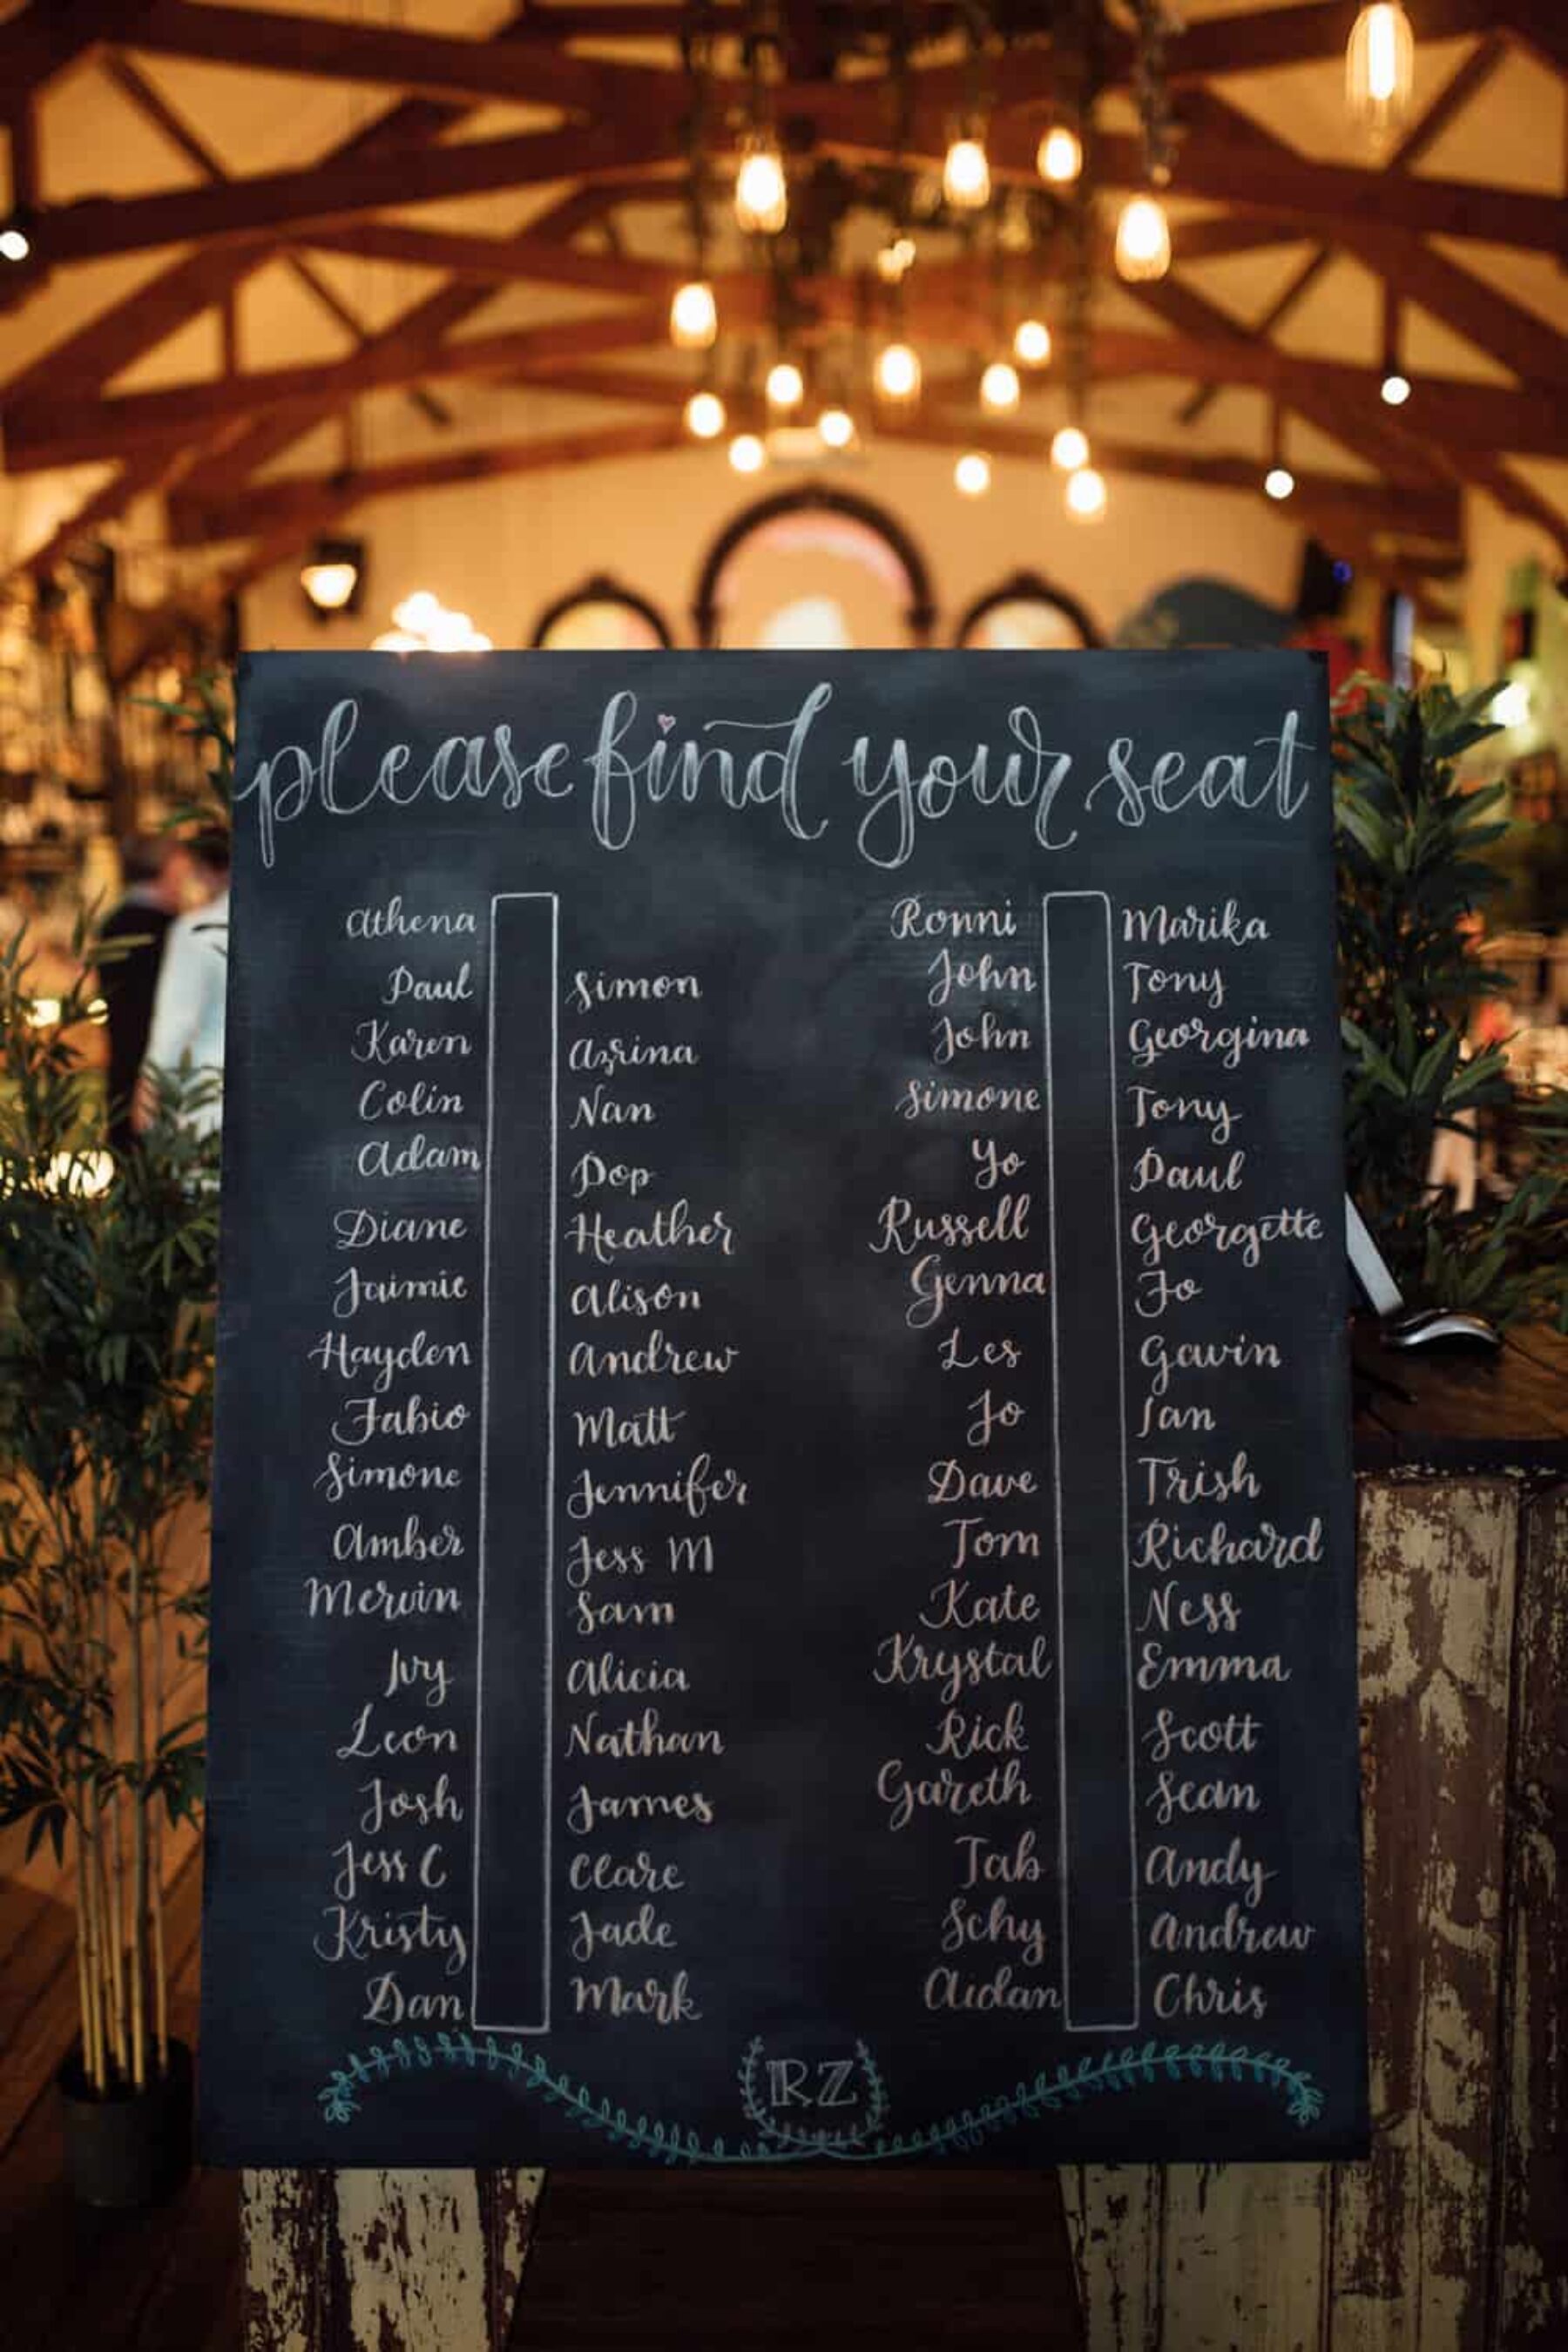 please find your seat
Athena
Paul
Karen
Colin
Adam
Diane
Jaimie
Hayden
Fabio
Simone
Amber
Mervin
Ivy
Leon
Josh
Jess C
Kristy
Dan
Simon
Azrina
Nan
Pop
Heather
Alison
Andrew
Matt
Jennifer
Jess M
Sam
Alicia
Nathan
James
Clare
Jade
Mark
Ronni
John
John
Simone
Yo
Russell
Genna
Les
Jo
Dave
Tom
Kate
Krystal
Rick
Gareth
Tab
Schy
Aidan
Marika
Tony
Georgina
Tony
Paul
Georgette
Jo
Gavin
Ian
Trish
Richard
Ness
Emma
Scott
Sean
Andy
Andrew
Chris
RZ